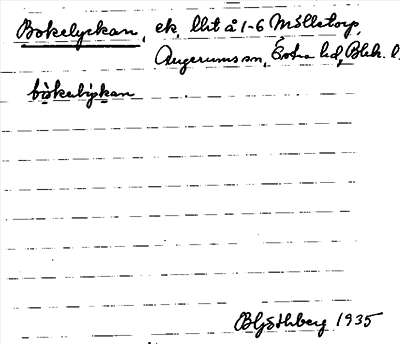 Bokelyckan, ek, llit å 1-6 Mölletorp,
Augerums sn, Östra hd, Blek. l.
bökelyckan
1935